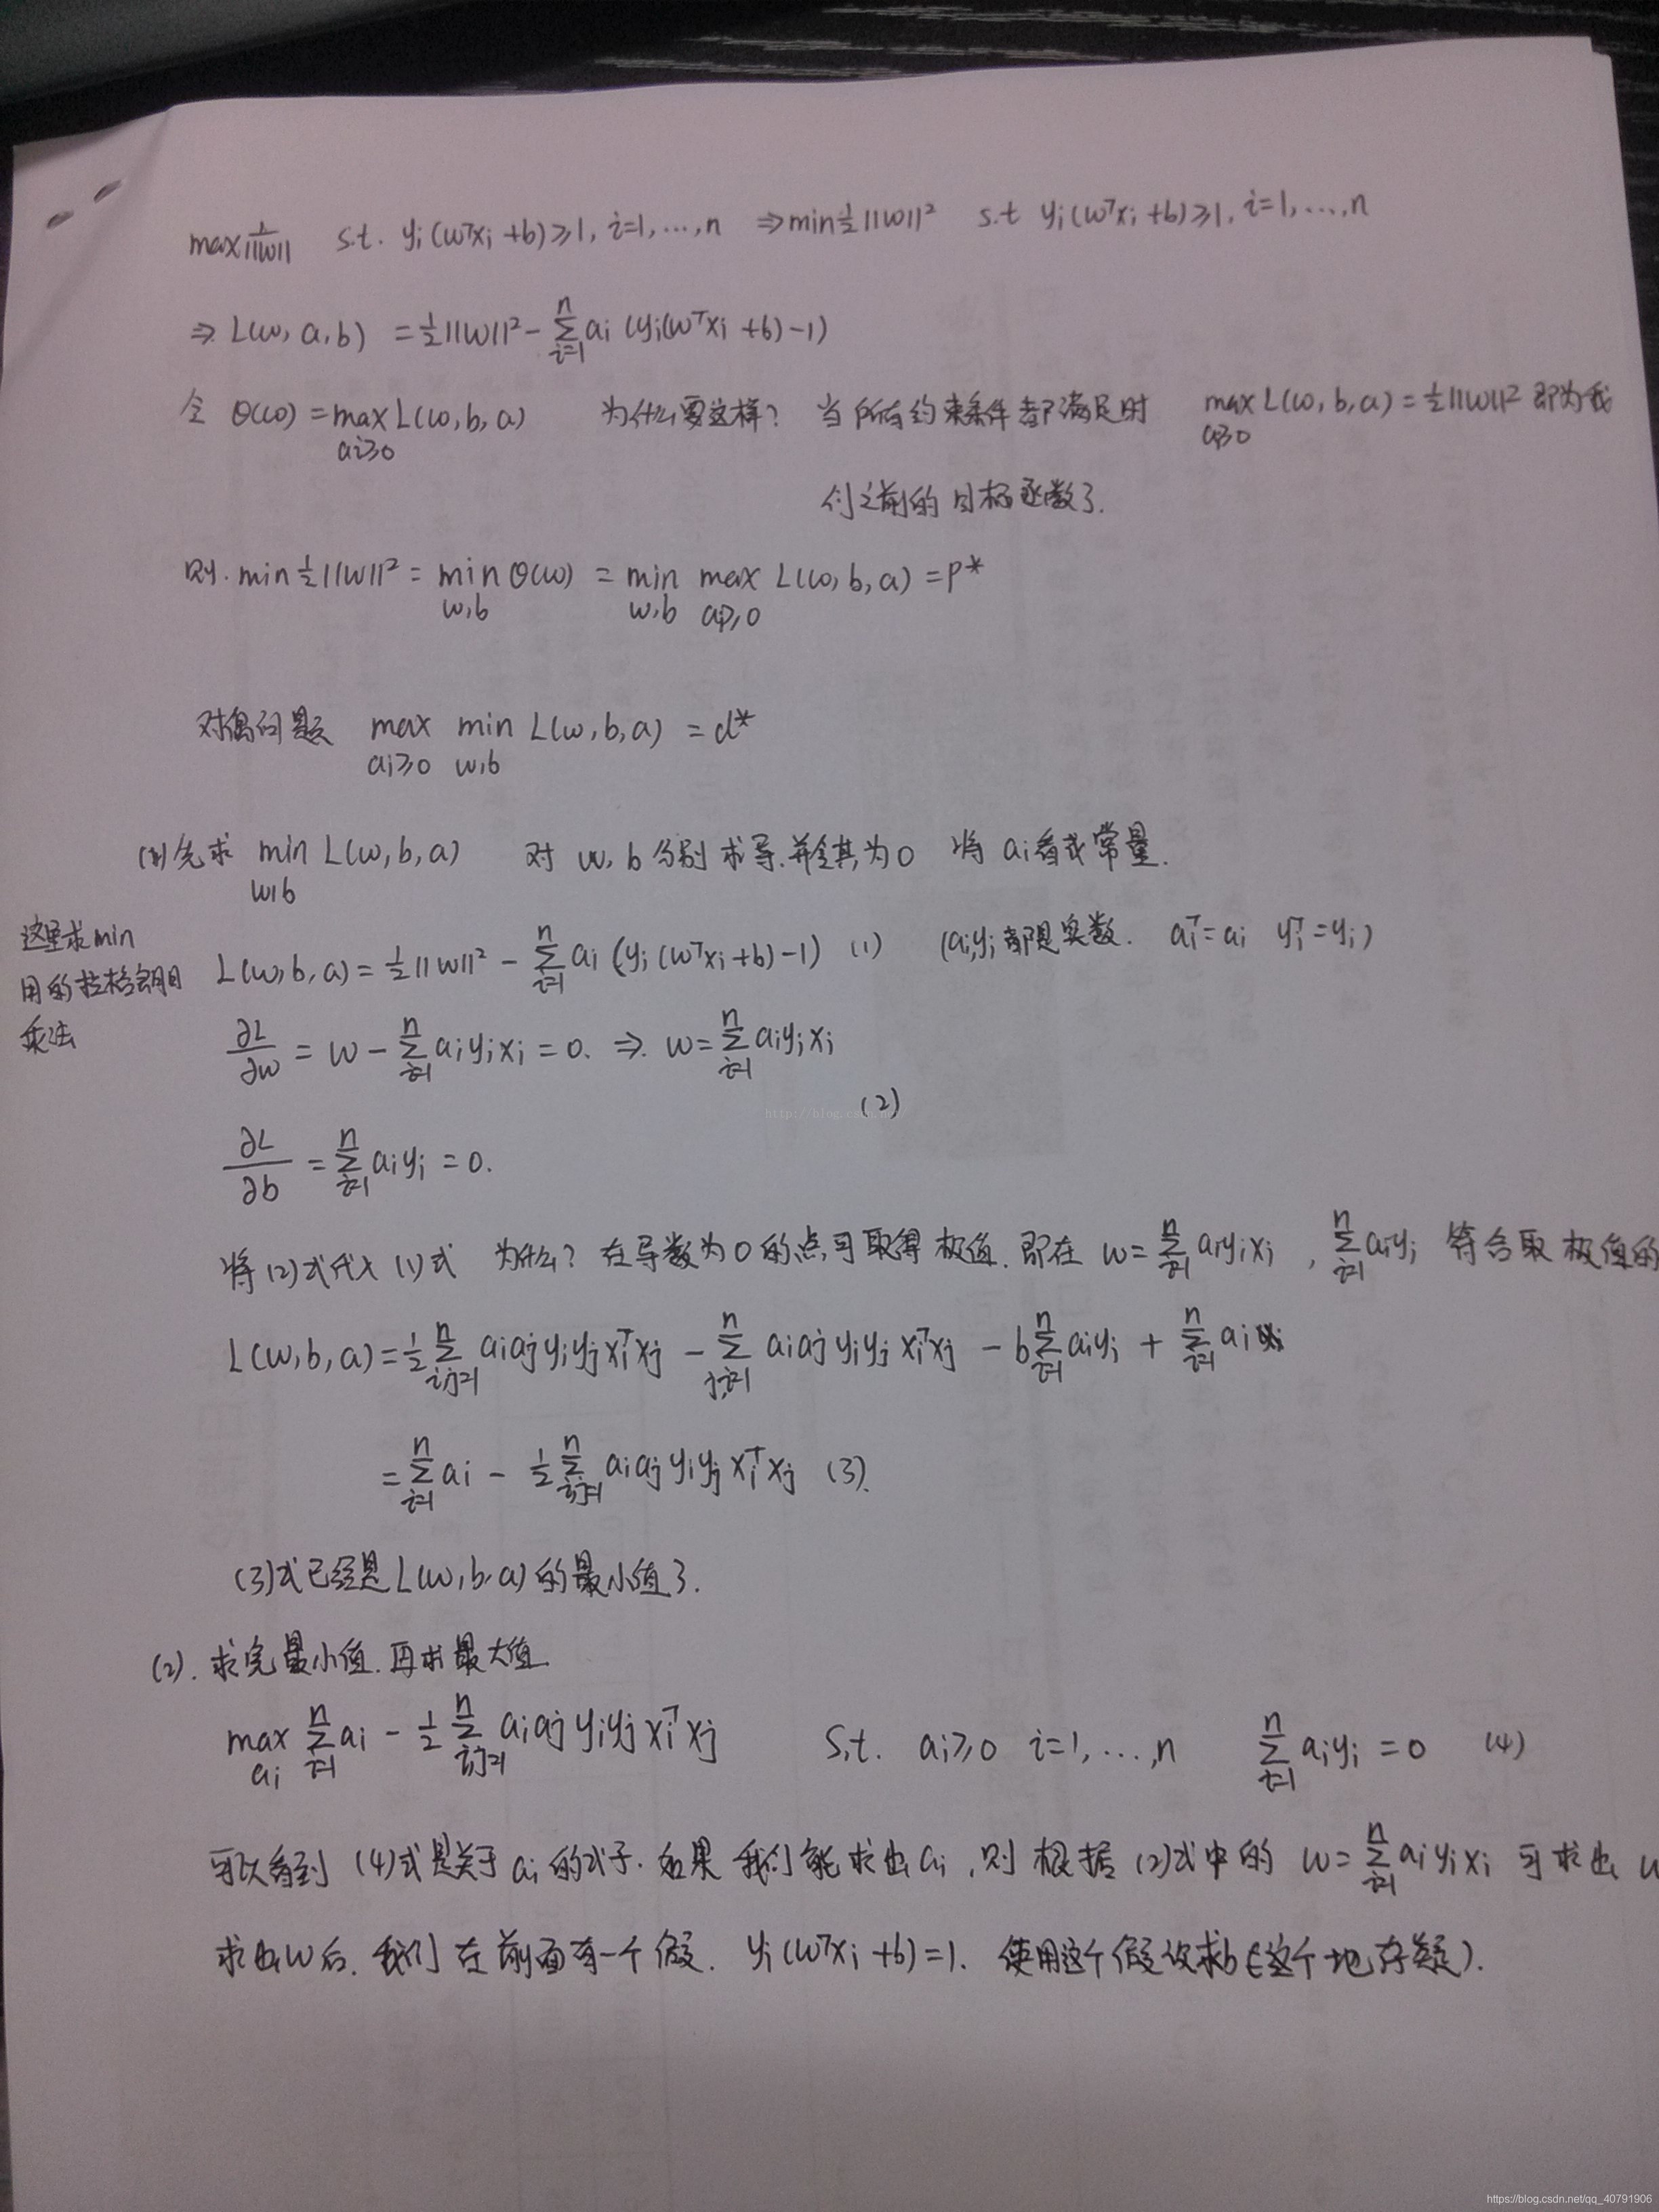 max 1/||w|| s.t. yi(wᵀxi+b)≥1, i=1,...,n ⇒ min ½||w||² s.t yi(wᵀxi+b)≥1, i=1,...,n
⇒ L(w, a, b) = ½||w||² - Σ_{i=1}^{n} ai (yi(wᵀxi+b)-1)
令 θ(w) = max_{ai≥0} L(w, b, a) 为什么要这样? 当所有约束条件都满足时 max_{ai≥0} L(w, b, a) = ½||w||² 即为我
们之前的目标函数了.
则. min ½||w||² = min_{w,b} θ(w) = min_{w,b} max_{ai≥0} L(w, b, a) = p*
对偶问题 max_{ai≥0} min_{w,b} L(w, b, a) = d*
(1)先求 min_{w,b} L(w, b, a) 对 w, b 分别求导.并令其为0 将 ai看成常量.
这里求min
用的拉格朗日
乘法
L(w, b, a) = ½||w||² - Σ_{i=1}^{n} ai (yi(wᵀxi+b)-1) (1) (ai,yi都是实数. aiᵀ=ai yiᵀ=yi)
∂L/∂w = w - Σ_{i=1}^{n} aiyixi = 0. ⇒. w = Σ_{i=1}^{n} aiyixi
(2)
∂L/∂b = Σ_{i=1}^{n} aiyi = 0.
将(2)式代入(1)式 为什么? 在导数为0的点可取得极值. 即在 w = Σ_{i=1}^{n} aiyixi , Σ_{i=1}^{n} aiyi 符合取极值的
L(w, b, a) = ½ Σ_{i,j=1}^{n} aiajyiyjxiᵀxj - Σ_{j,i=1}^{n} aiajyiyjxiᵀxj - b Σ_{i=1}^{n} aiyi + Σ_{i=1}^{n} ai
= Σ_{i=1}^{n} ai - ½ Σ_{i,j=1}^{n} aiajyiyjxiᵀxj (3).
(3)式已经是L(w, b, a)的最小值了.
(2). 求完最小值.再求最大值
max_{ai} Σ_{i=1}^{n} ai - ½ Σ_{i,j=1}^{n} aiajyiyjxiᵀxj s.t. ai≥0 i=1,...,n Σ_{i=1}^{n} aiyi = 0 (4)
可以看到 (4)式是关于ai的式子. 如果我们能求出ai ,则根据(2)式中的 w = Σ_{i=1}^{n} aiyixi 可求出 w
求出w后. 我们在前面有一个假设. yi(wᵀxi+b)=1. 使用这个假设求b(这个地存疑).
https://blog.csdn.net/qq_40791906